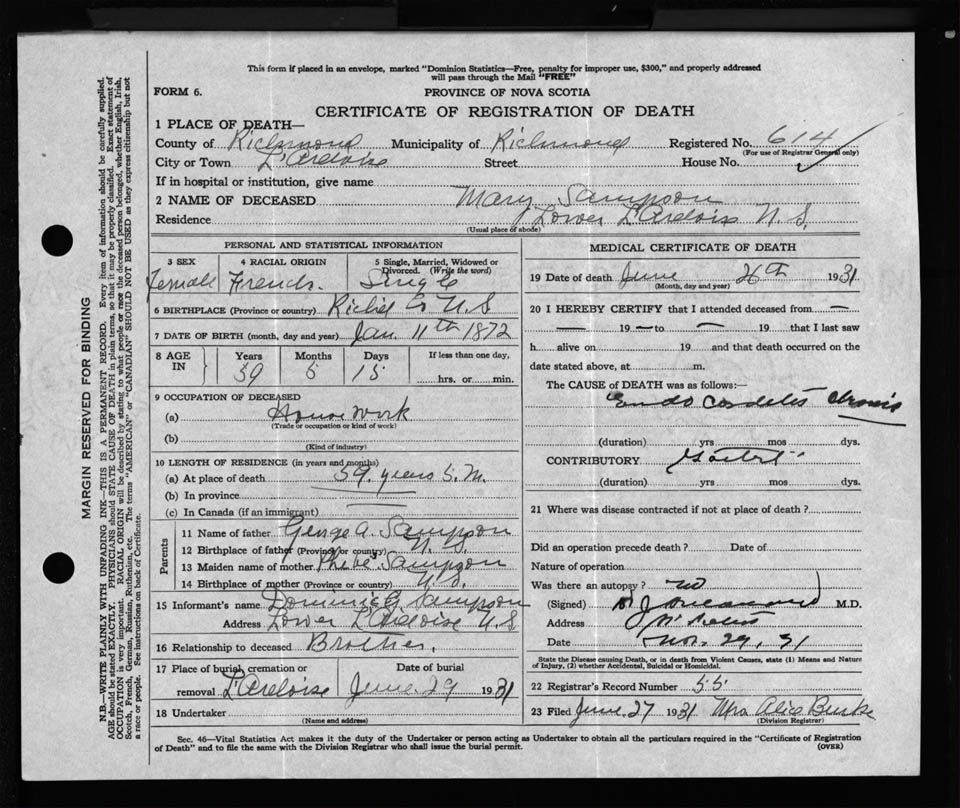 This form if placed in an envelope, marked "Dominion Statistics—Free, penalty for improper use, $300," and properly addressed
will pass through the Mail "FREE"
FORM 6.
PROVINCE OF NOVA SCOTIA
CERTIFICATE OF REGISTRATION OF DEATH
1 PLACE OF DEATH—
County of Richmond Municipality of Richmond Registered No. 614
(For use of Registrar General only)
City or Town L'Ardoise Street House No.
If in hospital or institution, give name
2 NAME OF DECEASED Mary Sampson
Residence Lower L'Ardois N.S.
(Usual place of abode)
PERSONAL AND STATISTICAL INFORMATION
3 SEX 4 RACIAL ORIGIN 5 Single, Married, Widowed or
Divorced. (Write the word)
Female French. Single
6 BIRTHPLACE (Province or country) Richd Co N S
7 DATE OF BIRTH (month, day and year) Jan. 11th 1872
8 AGE IN Years Months Days If less than one day,
59 5 15 hrs. or min.
9 OCCUPATION OF DECEASED
(a) House Work
(Trade or occupation or kind of work)
(b)
(Kind of industry)
10 LENGTH OF RESIDENCE (in years and months)
(a) At place of death 59 years 5 M.
(b) In province
(c) In Canada (if an immigrant)
Parents
11 Name of father George A. Sampson
12 Birthplace of father (Province or country) N. S.
13 Maiden name of mother Phebe Sampson
14 Birthplace of mother (Province or country) N S
15 Informant's name Dominic G Sampson
Address Lower L'Ardoise N.S
16 Relationship to deceased Brother.
17 Place of burial, cremation or Date of burial
removal L'Ardoise June 29 1931
18 Undertaker
(Name and address)
MEDICAL CERTIFICATE OF DEATH
19 Date of death June 26th 1931
(Month, day and year)
20 I HEREBY CERTIFY that I attended deceased from —
— 19 — to — 19 that I last saw
h alive on 19 and that death occurred on the
date stated above, at m.
The CAUSE of DEATH was as follows:—
Endo Cardites Chronic
(duration) yrs mos dys.
CONTRIBUTORY
(duration) yrs mos dys.
21 Where was disease contracted if not at place of death?
Did an operation precede death? Date of
Nature of operation
Was there an autopsy? no
(Signed) M.D.
Address
Date Nov. 29, 31
State the Disease causing Death, or in death from Violent Causes, state (1) Means and Nature
of Injury, (2) whether Accidental, Suicidal or Homicidal.
22 Registrar's Record Number 55
23 Filed June 27 1931 Mrs Alice Burke
(Division Registrar)
Sec. 46—Vital Statistics Act makes it the duty of the Undertaker or person acting as Undertaker to obtain all the particulars required in the "Certificate of Registration
of Death" and to file the same with the Division Registrar who shall issue the burial permit.
(OVER)
MARGIN RESERVED FOR BINDING
N.B.—WRITE PLAINLY WITH UNFADING INK—THIS IS A PERMANENT RECORD. Every item of information should be carefully supplied.
AGE should be stated EXACTLY. PHYSICIANS should STATE CAUSE OF DEATH in plain terms, so that it may be properly classified. Exact statement of
OCCUPATION is very important. RACIAL ORIGIN will be described by stating to what people or race the deceased person belonged, whether English, Irish,
Scotch, French, German, Russian, Ruthenian, etc. The terms "AMERICAN" or "CANADIAN" SHOULD NOT BE USED as they express citizenship but not
a race or people. See instructions on back of Certificate.